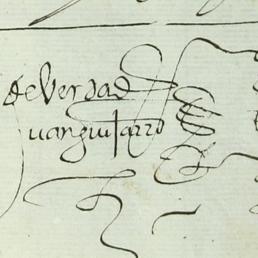 de Verdad
Juan guijarro